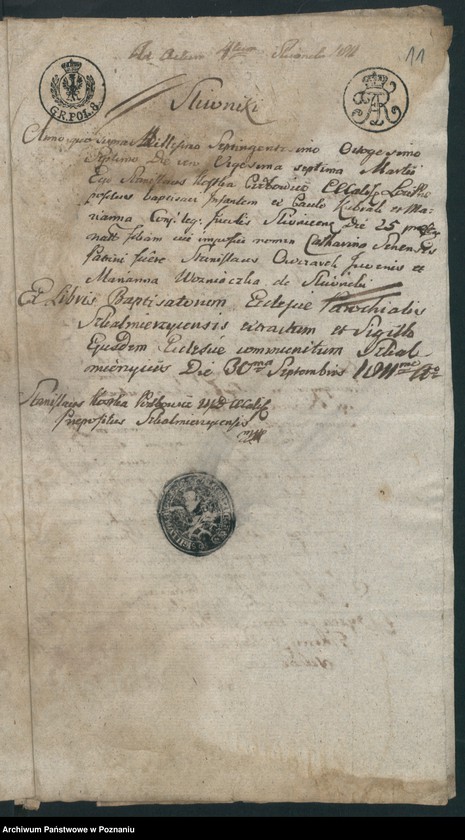 Ad Actum 4tum 1811
11
G.R.POL.8.
FAR
Sliwniki
Anno quo supra Millesimo Septingentesimo Octogesimo
Septimo Die vero Vigesima septima Martii
Ego Stanislaus Kostka
positus baptisavi Infantem ex Paulo Kubiak et Ma-
rianna Conj. leg. Die 25 
nati filiam cui imposui nomen Catharina
Patrini fuere Stanislaus Owczarek Juvenis et
Marianna Wozniaczka de Sliwniki
Ex Libris Baptisatorum Eclesiae Parochialis
Skalmierzycensis extractum et Sigillo
Ejusdem Eclesiae communitum Skal-
mierzyciis Die 30ma Septembris 1811mo Ao
Stanislaus Kostka
Praepositus Skalmierzycensis
mpp
Archiwum Państwowe w Poznaniu